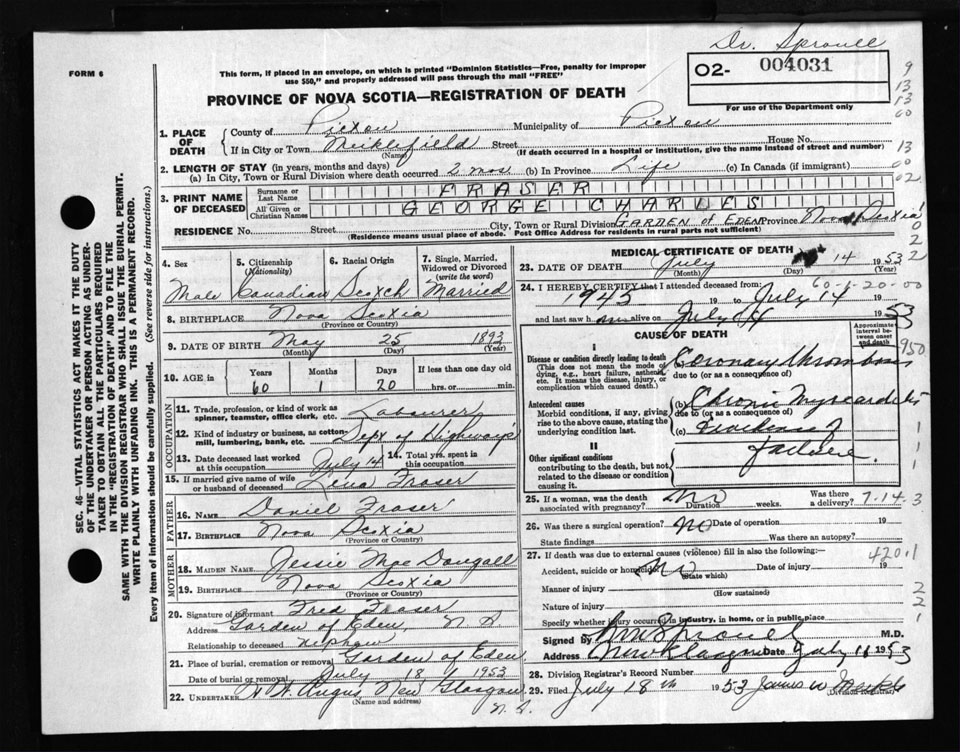 Dr. Sproull
FORM 6
This form, if placed in an envelope, on which is printed "Dominion Statistics—Free, penalty for improper
use $50," and properly addressed will pass through the mail "FREE"
02- 004031
For use of the Department only
PROVINCE OF NOVA SCOTIA—REGISTRATION OF DEATH
9
13
13
60
13
60
02
SEC. 46—VITAL STATISTICS ACT MAKES IT THE DUTY
OF THE UNDERTAKER OR PERSON ACTING AS UNDER-
TAKER TO OBTAIN ALL THE PARTICULARS REQUIRED
IN THE "REGISTRATION OF DEATH" AND TO FILE THE
SAME WITH THE DIVISION REGISTRAR WHO SHALL ISSUE THE BURIAL PERMIT.
WRITE PLAINLY WITH UNFADING INK. THIS IS A PERMANENT RECORD.
Every item of information should be carefully supplied. (See reverse side for instructions.)
1. PLACE OF DEATH County of Pictou Municipality of Pictou
If in City or Town Meiklefield Street House No.
(Name) (If death occurred in a hospital or institution, give the name instead of street and number)
2. LENGTH OF STAY (in years, months and days)
(a) In City, Town or Rural Division where death occurred 2 mos (b) In Province Life (c) In Canada (if immigrant)
3. PRINT NAME OF DECEASED
Surname or Last Name FRASER
All Given or Christian Names GEORGE CHARLES
RESIDENCE No. Street City, Town or Rural Division GARDEN of EDEN Province Nova Scotia
(Residence means usual place of abode. Post Office Address for residents in rural parts not sufficient)
4. Sex 5. Citizenship (Nationality) 6. Racial Origin 7. Single, Married, Widowed or Divorced (write the word)
Male Canadian Scotch Married
8. BIRTHPLACE Nova Scotia
(Province or County)
9. DATE OF BIRTH May 25 1893
(Month) (Day) (Year)
10. AGE in Years Months Days If less than one day old
60 1 20 hrs. or min.
OCCUPATION
11. Trade, profession, or kind of work as spinner, teamster, office clerk, etc. Labourer
12. Kind of industry or business, as cotton-mill, lumbering, bank, etc. Dept of Highways
13. Date deceased last worked at this occupation July 14 14. Total yrs. spent in this occupation
15. If married give name of wife or husband of deceased Lena Fraser
FATHER
16. NAME Daniel Fraser
17. BIRTHPLACE Nova Scotia
(Province or County)
MOTHER
18. MAIDEN NAME Jessie MacDougall
19. BIRTHPLACE Nova Scotia
(Province or County)
20. Signature of informant Fred Fraser
Address Garden of Eden, N S
Relationship to deceased nephew
21. Place of burial, cremation or removal Garden of Eden
Date of burial or removal July 18 1953
22. UNDERTAKER Angus, New Glasgow
N.S.
MEDICAL CERTIFICATE OF DEATH
23. DATE OF DEATH July 14 1953
(Month) (Day) (Year)
24. I HEREBY CERTIFY that I attended deceased from: 60-1-20-00
1945 19 to July 14 1953
and last saw h im alive on July 14 1953
CAUSE OF DEATH
Approximate interval between onset and death
I
Disease or condition directly leading to death
(This does not mean the mode of dying, e.g., heart failure, asthenia, etc. It means the disease, injury, or complication which caused death.)
(a) Coronary Thrombosis
due to (or as a consequence of)
950
Antecedent causes
Morbid conditions, if any, giving rise to the above cause, stating the underlying condition last.
(b) Chronic Myocarditis
due to (or as a consequence of)
(c)
II
Other significant conditions
contributing to the death, but not related to the disease or condition causing it.
failure
25. If a woman, was the death associated with pregnancy? No Duration weeks. Was there a delivery? 7-14-3
26. Was there a surgical operation? No Date of operation 19
State findings Was there an autopsy?
27. If death was due to external causes (violence) fill in also the following: 420.1
Accident, suicide or homicide? No Date of injury 19
(State which)
Manner of injury
(How sustained)
Nature of injury
Specify whether injury occurred in industry, in home, or in public place
Signed by Sproull M.D.
Address New Glasgow Date July 16 1953
28. Division Registrar's Record Number
29. Filed July 18 th 1953 James W
(Division Registrar)